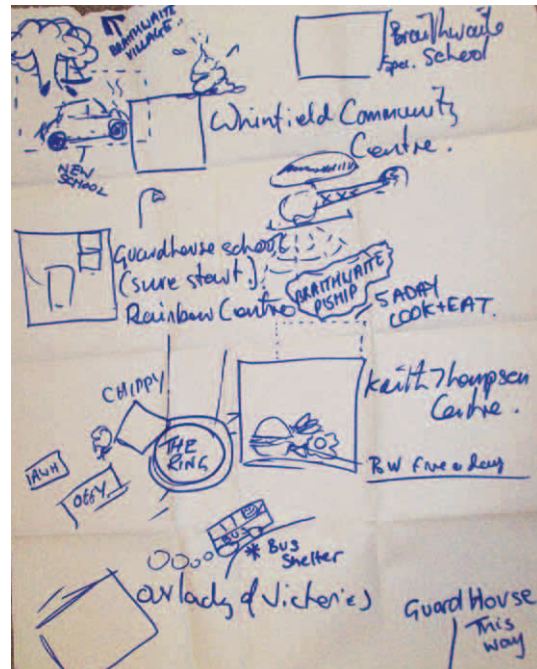 BRAITHWAITE
VILLAGE..
Braithwaite
Spec. School
Whinfield Community
Centre.
NEW
SCHOOL
XXX
Guardhouse school
(sure start.)
Rainbow Centre
BRAITHWAITE
5 A DAY
COOK + EAT.
Keith Thompson
Centre.
CHIPPY
THE
RING
OFFY
Five a day
BUS
* BUS
Shelter
our lady of Victories
Guard House
This
way